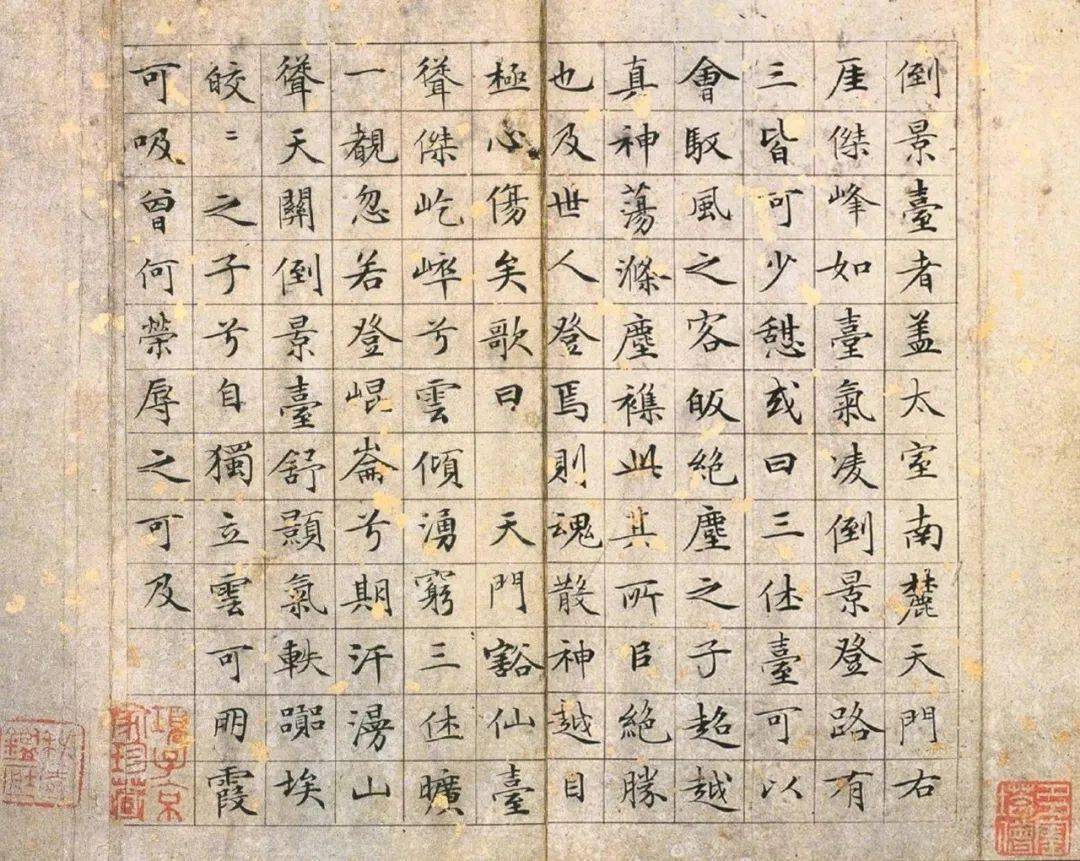 倒景臺者盖太室南麓天門右
厓傑峰如臺氣凌倒景登路有
三皆可少憩或曰三休臺可以
會馭風之客皈絶塵之子超越
真神蕩滌塵襟此其所㠯絶勝
也及世人登焉則魂散神越目
極心傷矣歌曰 天門豁仙臺
聳傑屹崒兮雲傾湧窮三休曠
一覩忽若登崐崙兮期汗漫山
聳天關倒景臺舒顥氣軼埃
皎〻之子兮自獨立雲可朋霞
可吸曾何榮辱之可及
項子京
家珍藏